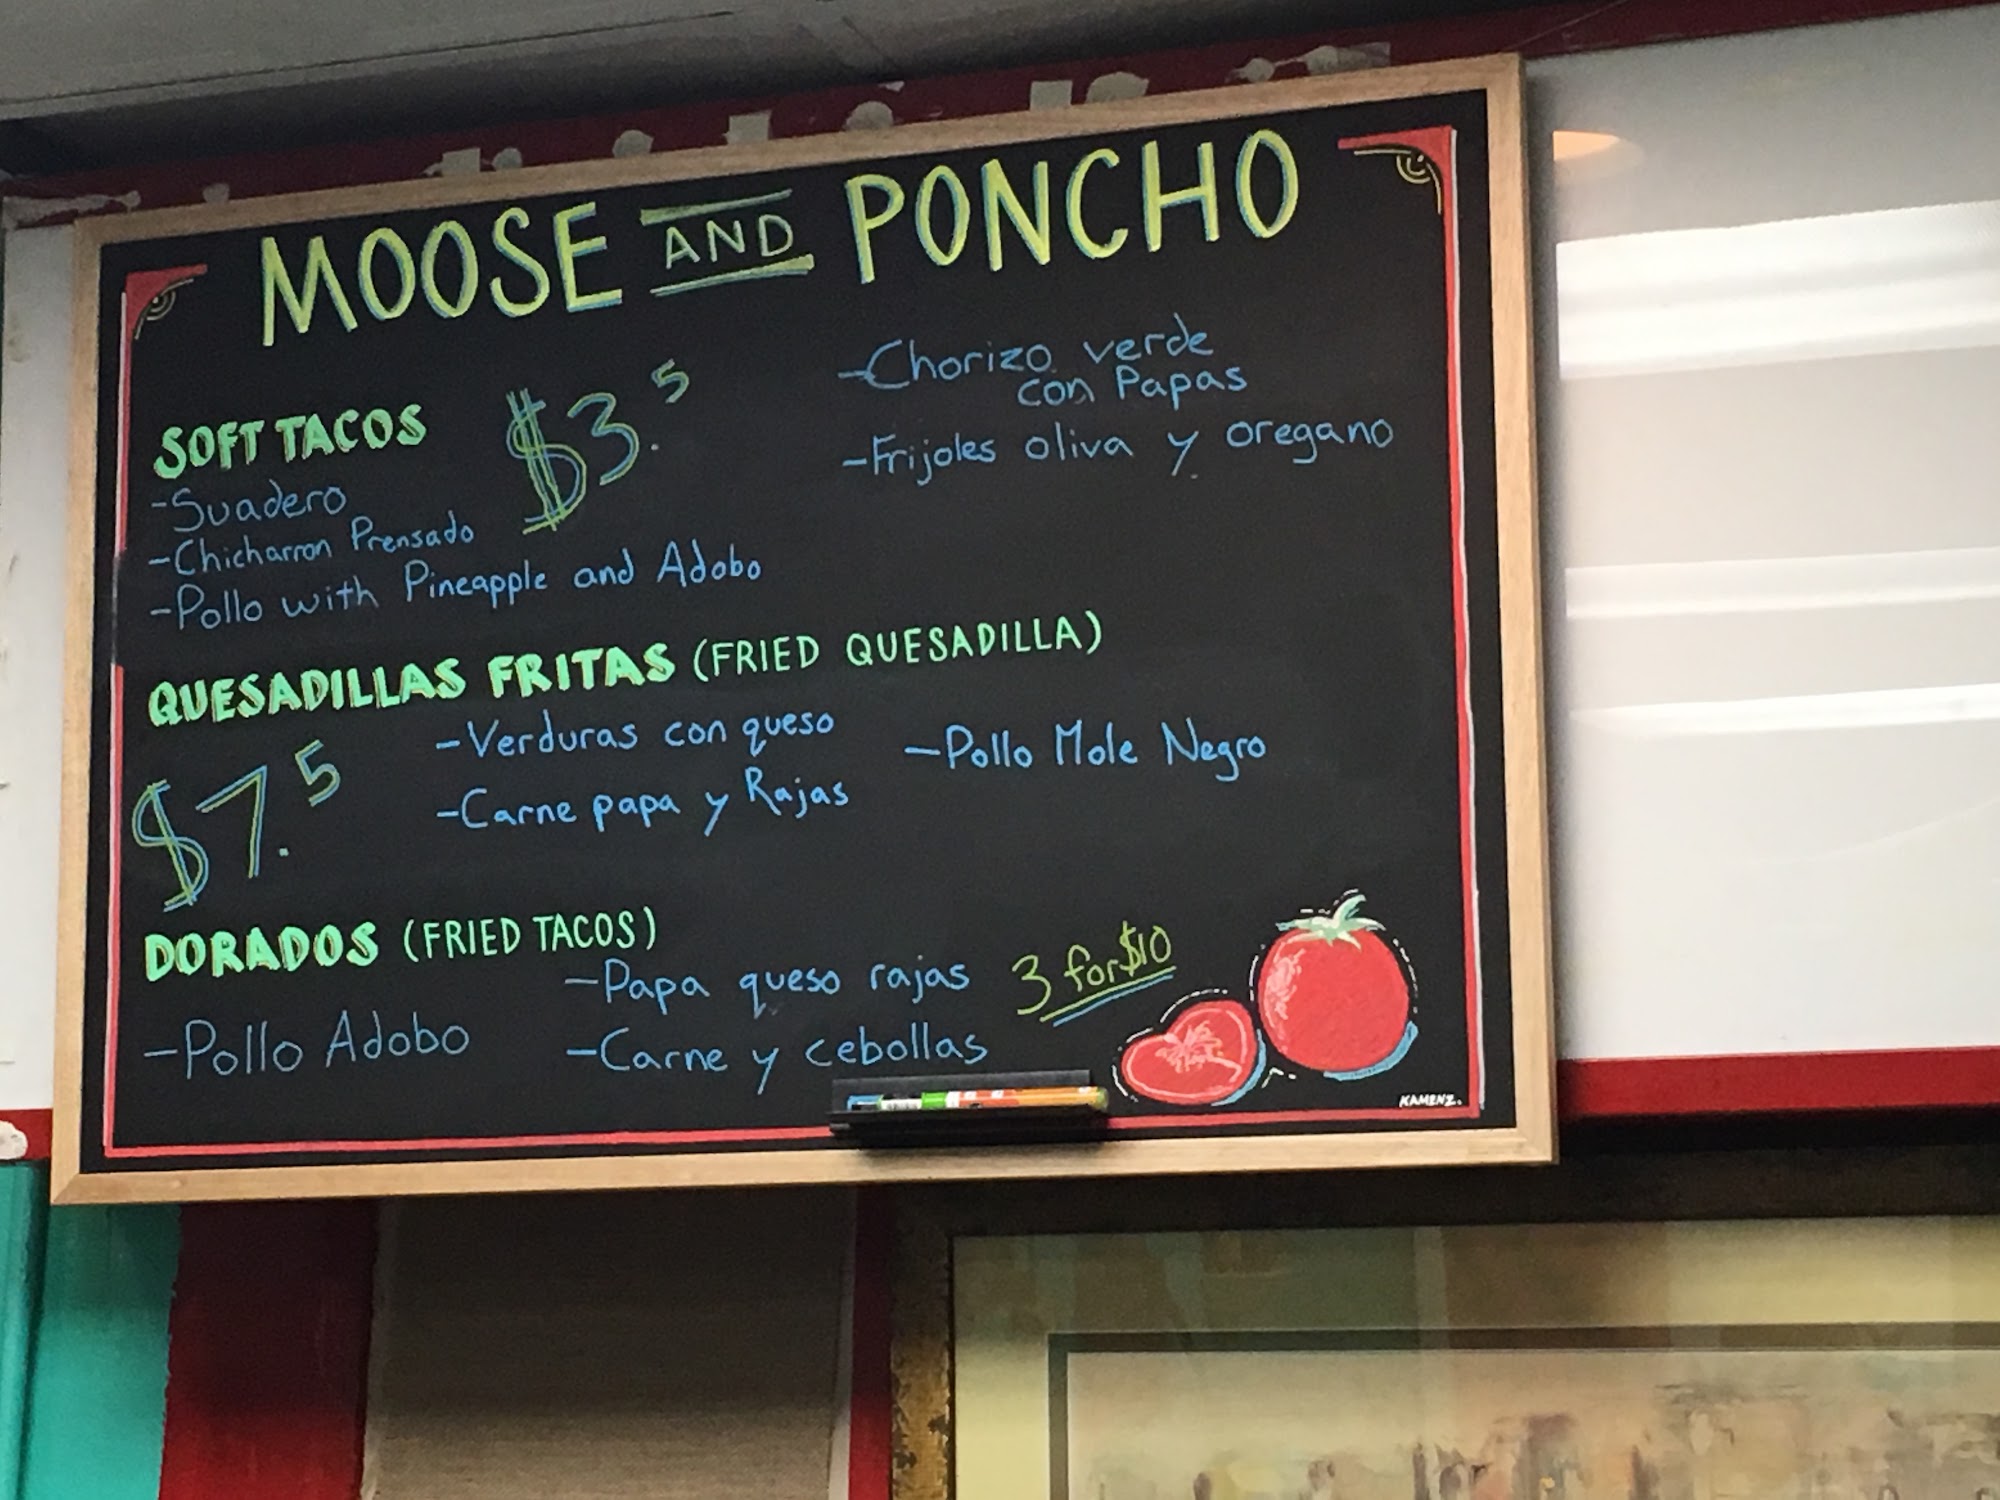 MOOSE AND PONCHO
SOFT TACOS $3.5
-Suadero
-Chicharron Prensado
-Pollo with Pineapple and Adobo
-Chorizo verde
con Papas
-Frijoles oliva y oregano
QUESADILLAS FRITAS (FRIED QUESADILLA)
$7.5
-Verduras con queso
-Carne papa y Rajas
-Pollo Mole Negro
DORADOS (FRIED TACOS)
-Pollo Adobo
-Papa queso rajas
-Carne y cebollas
3 for $10
KAMENZ.